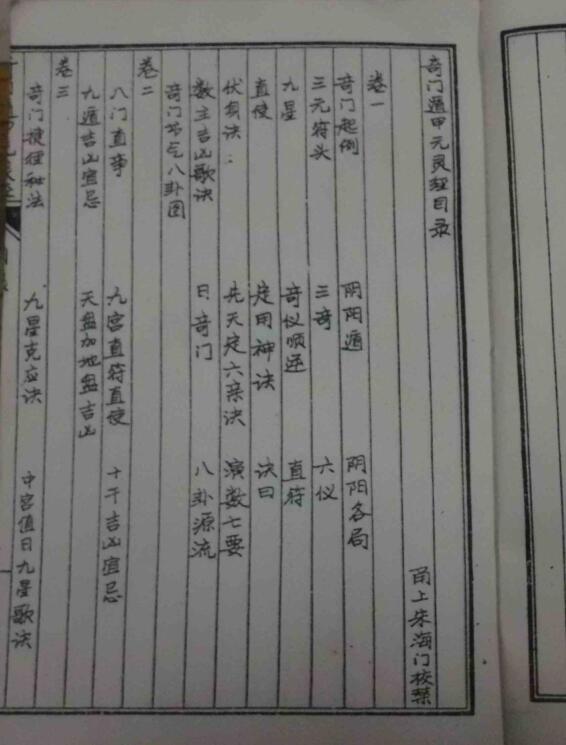 奇门遁甲元灵经目录
甬上朱海门校禁
卷一
奇门起例 阴阳遁 阴阳各局
三元符头 三奇 六仪
九星 奇仪顺逆 直符
直使 定用神诀 诀曰
伏刻诀: 先天定六亲诀 演数七要
数主吉凶歌诀 日奇门 八卦源流
奇门节气八卦图
卷二
八门直事 九宫直符直使 十干吉凶宜忌
九遁吉凶宜忌 天盘加地盘吉凶
卷三
奇门捷径秘法 九星克应诀 中宫值日九星歌诀